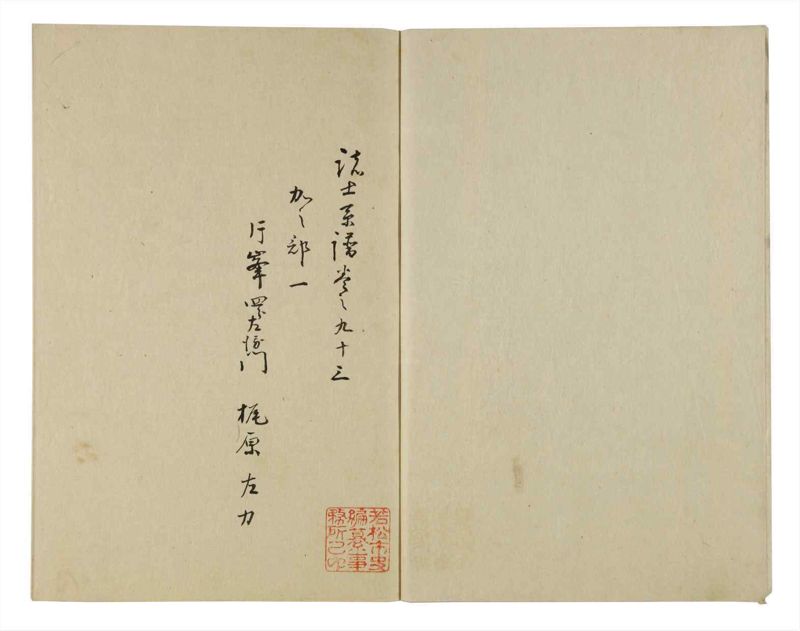 諸士系譜巻之九十三
加之部一
片峯四郎左衛門　梶原左力
若松市史
編纂事
務所之印